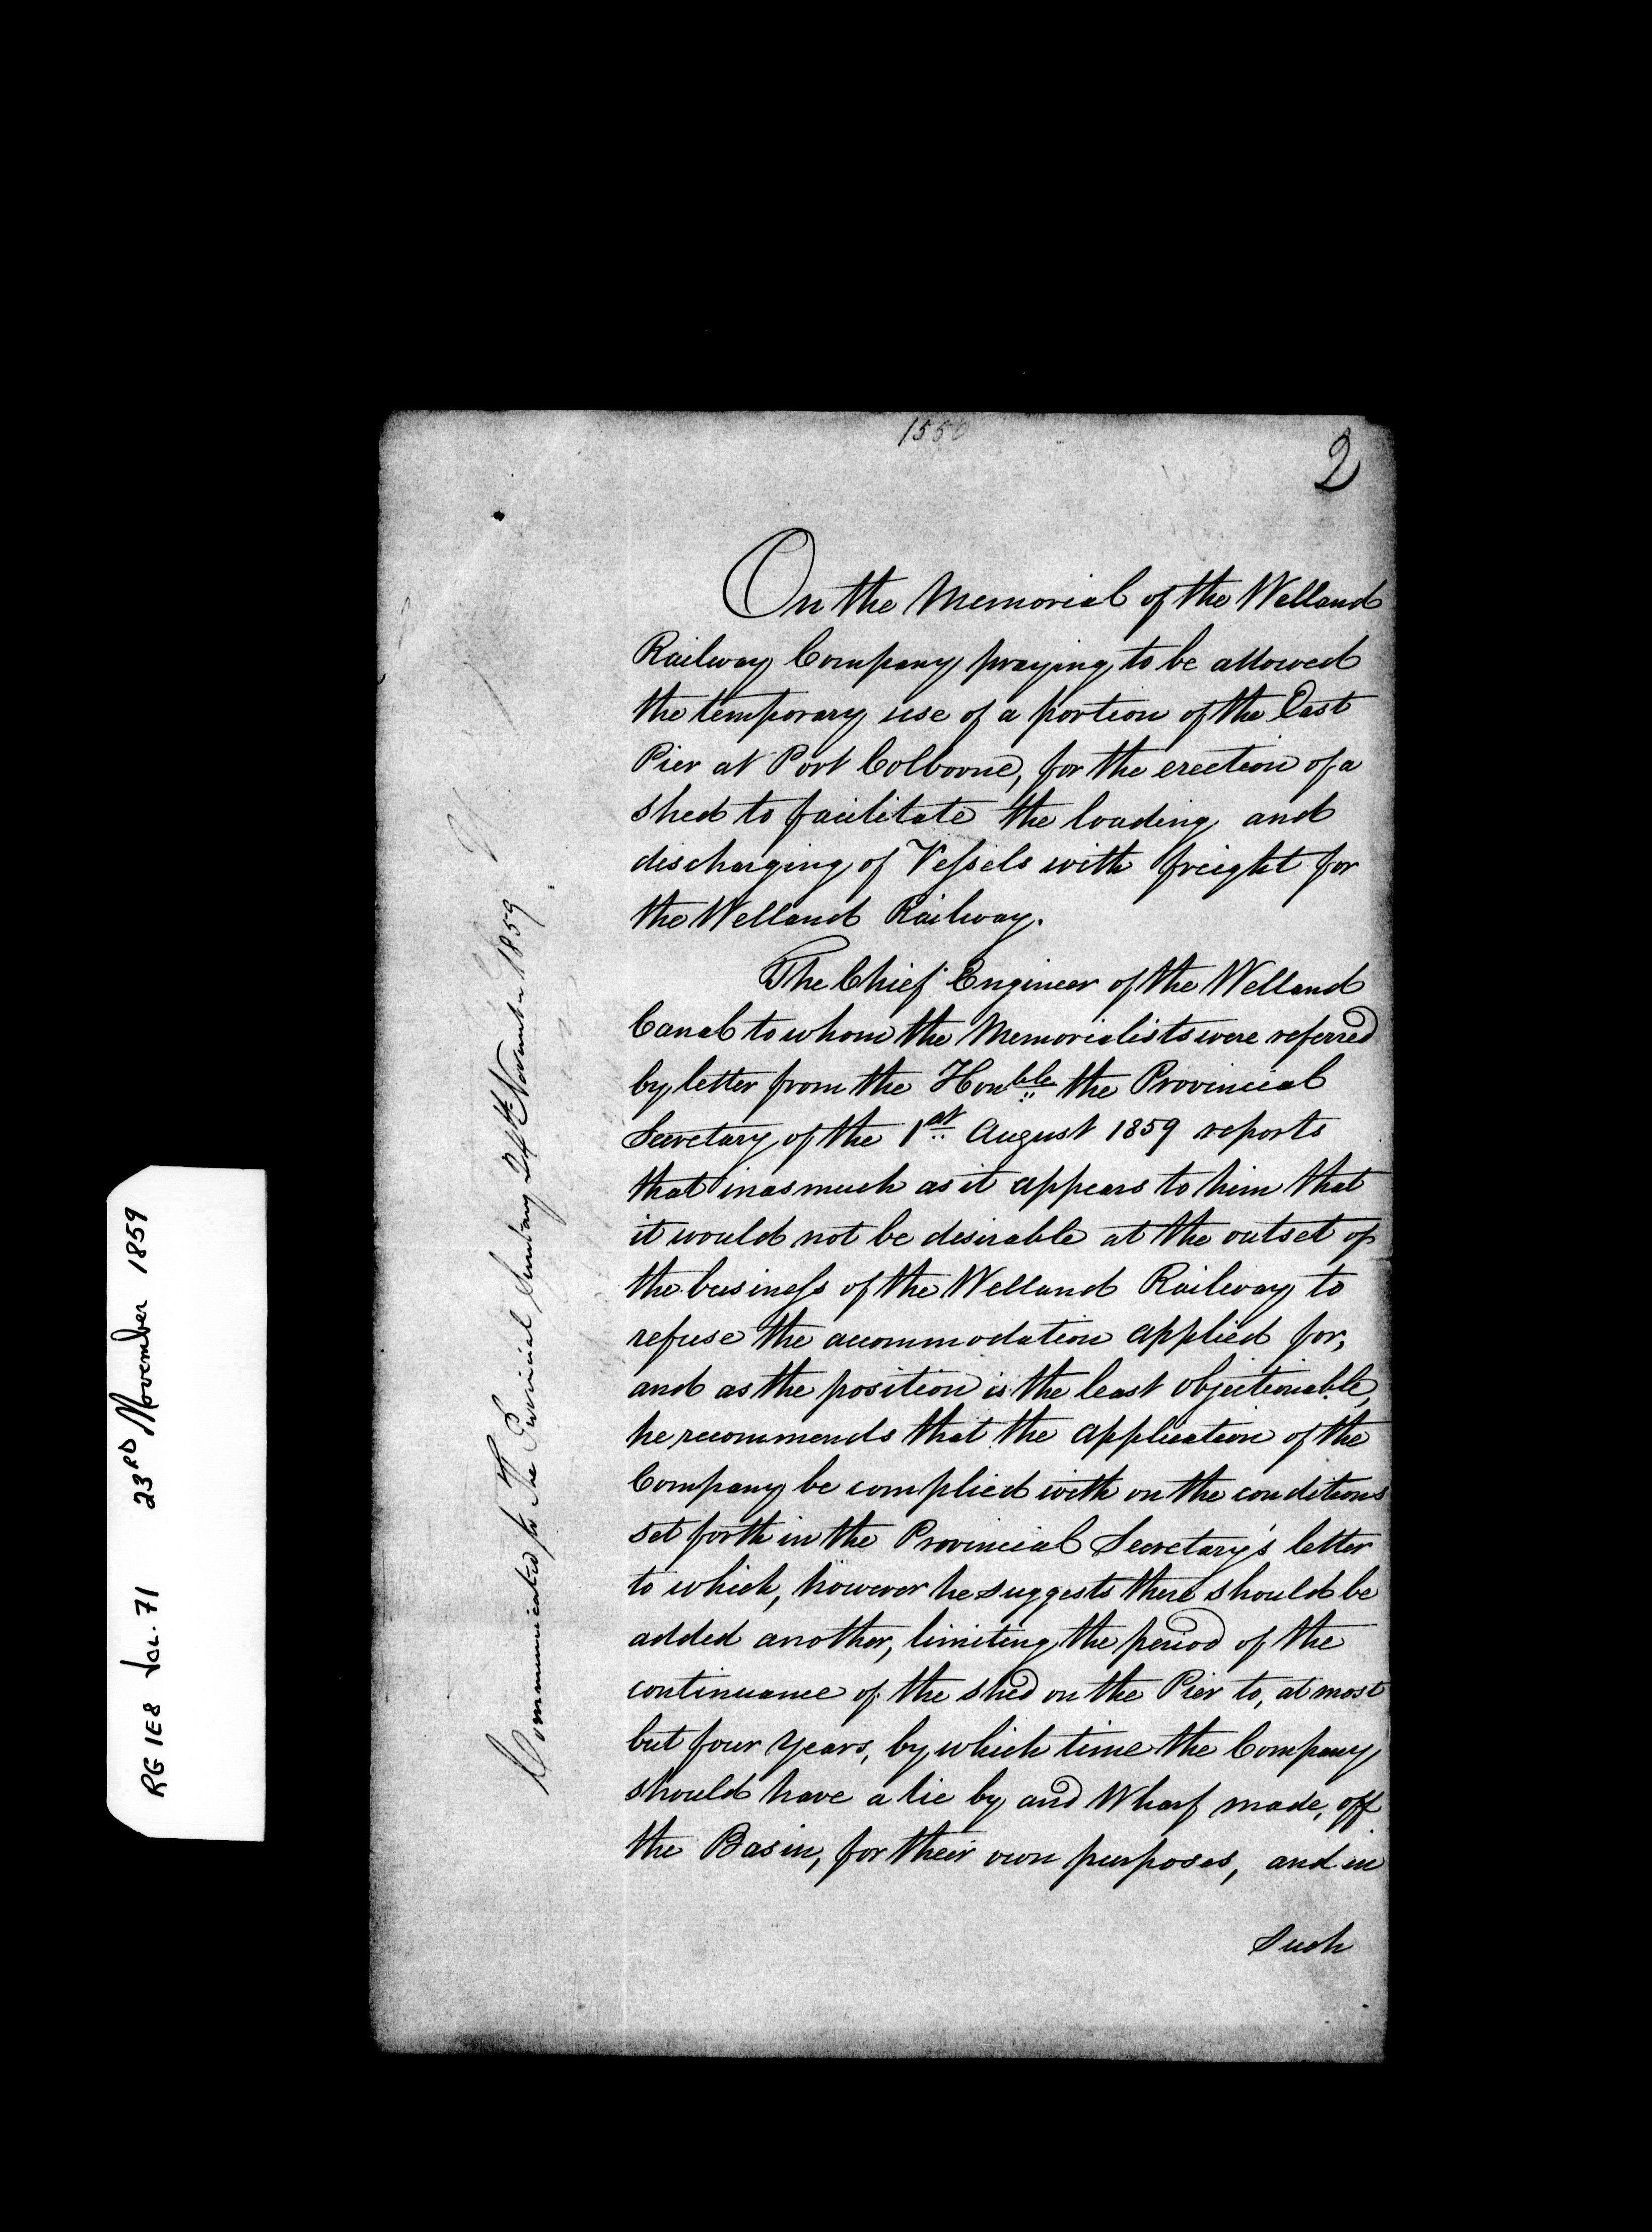 155
2
On the Memorial of the Welland
Railway Company praying to be allowed
the temporary use of a portion of the East
Pier at Port Colborne, for the erection of a
shed to facilitate the loading and
discharging of Vessels with freight for
the Welland Railway.
The Chief Engineer of the Welland
Canal to whom the Memorialists were referred
by letter from the Honble the Provincial
Secretary of the 1st August 1859 reports
that inasmuch as it appears to him that
it would not be desirable at the outset of
the business of the Welland Railway to
refuse the accommodation applied for,
and as the position is the least objectionable,
he recommends that the application of the
Company be complied with on the conditions
set forth in the Provincial Secretary's letter
to which, however he suggests there should be
added another, limiting the period of the
continuance of the shed on the Pier to, at most
but four years, by which time the Company
should have a lie by and Wharf made, off
the Basin, for their own purposes, and in
Such
Communicated to The Provincial Secretary 24th November 1859
RG 1E8 Vol. 71 23RD November 1859